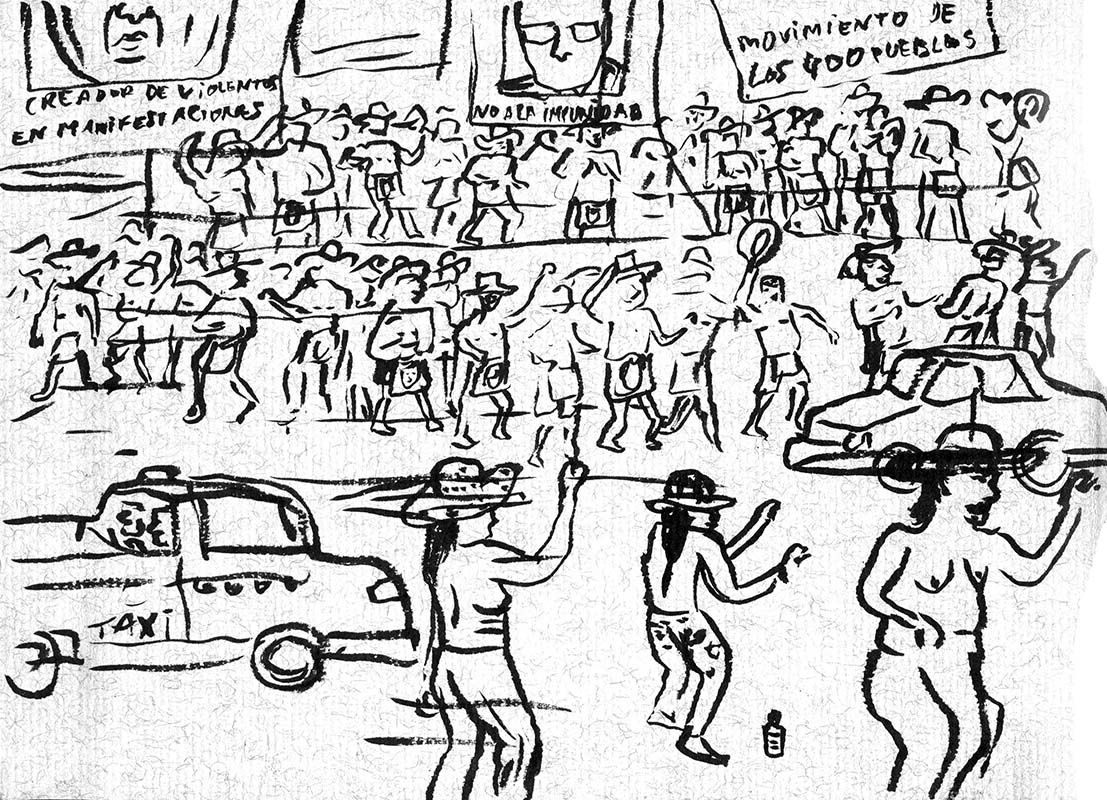 CREADOR DE VIOLENTOS
EN MANIFESTACIONES
NO A LA IMPUNIDAD
MOVIMIENTO DE
LOS 400 PUEBLOS
TAXI